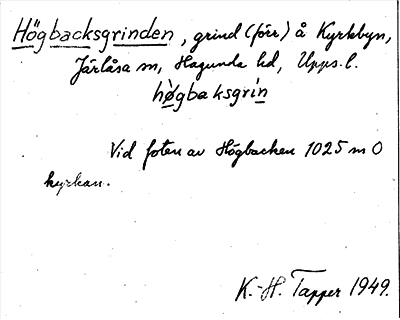 Högbacksgrinden, grind (förr) å Kyrkbyn,
Järlåsa sn, Hagunda hd, Upps. l.
hø̀gbaksgrín
Vid foten av Högbacken 1025 m O
kyrkan.
K.-H. Tapper 1949.